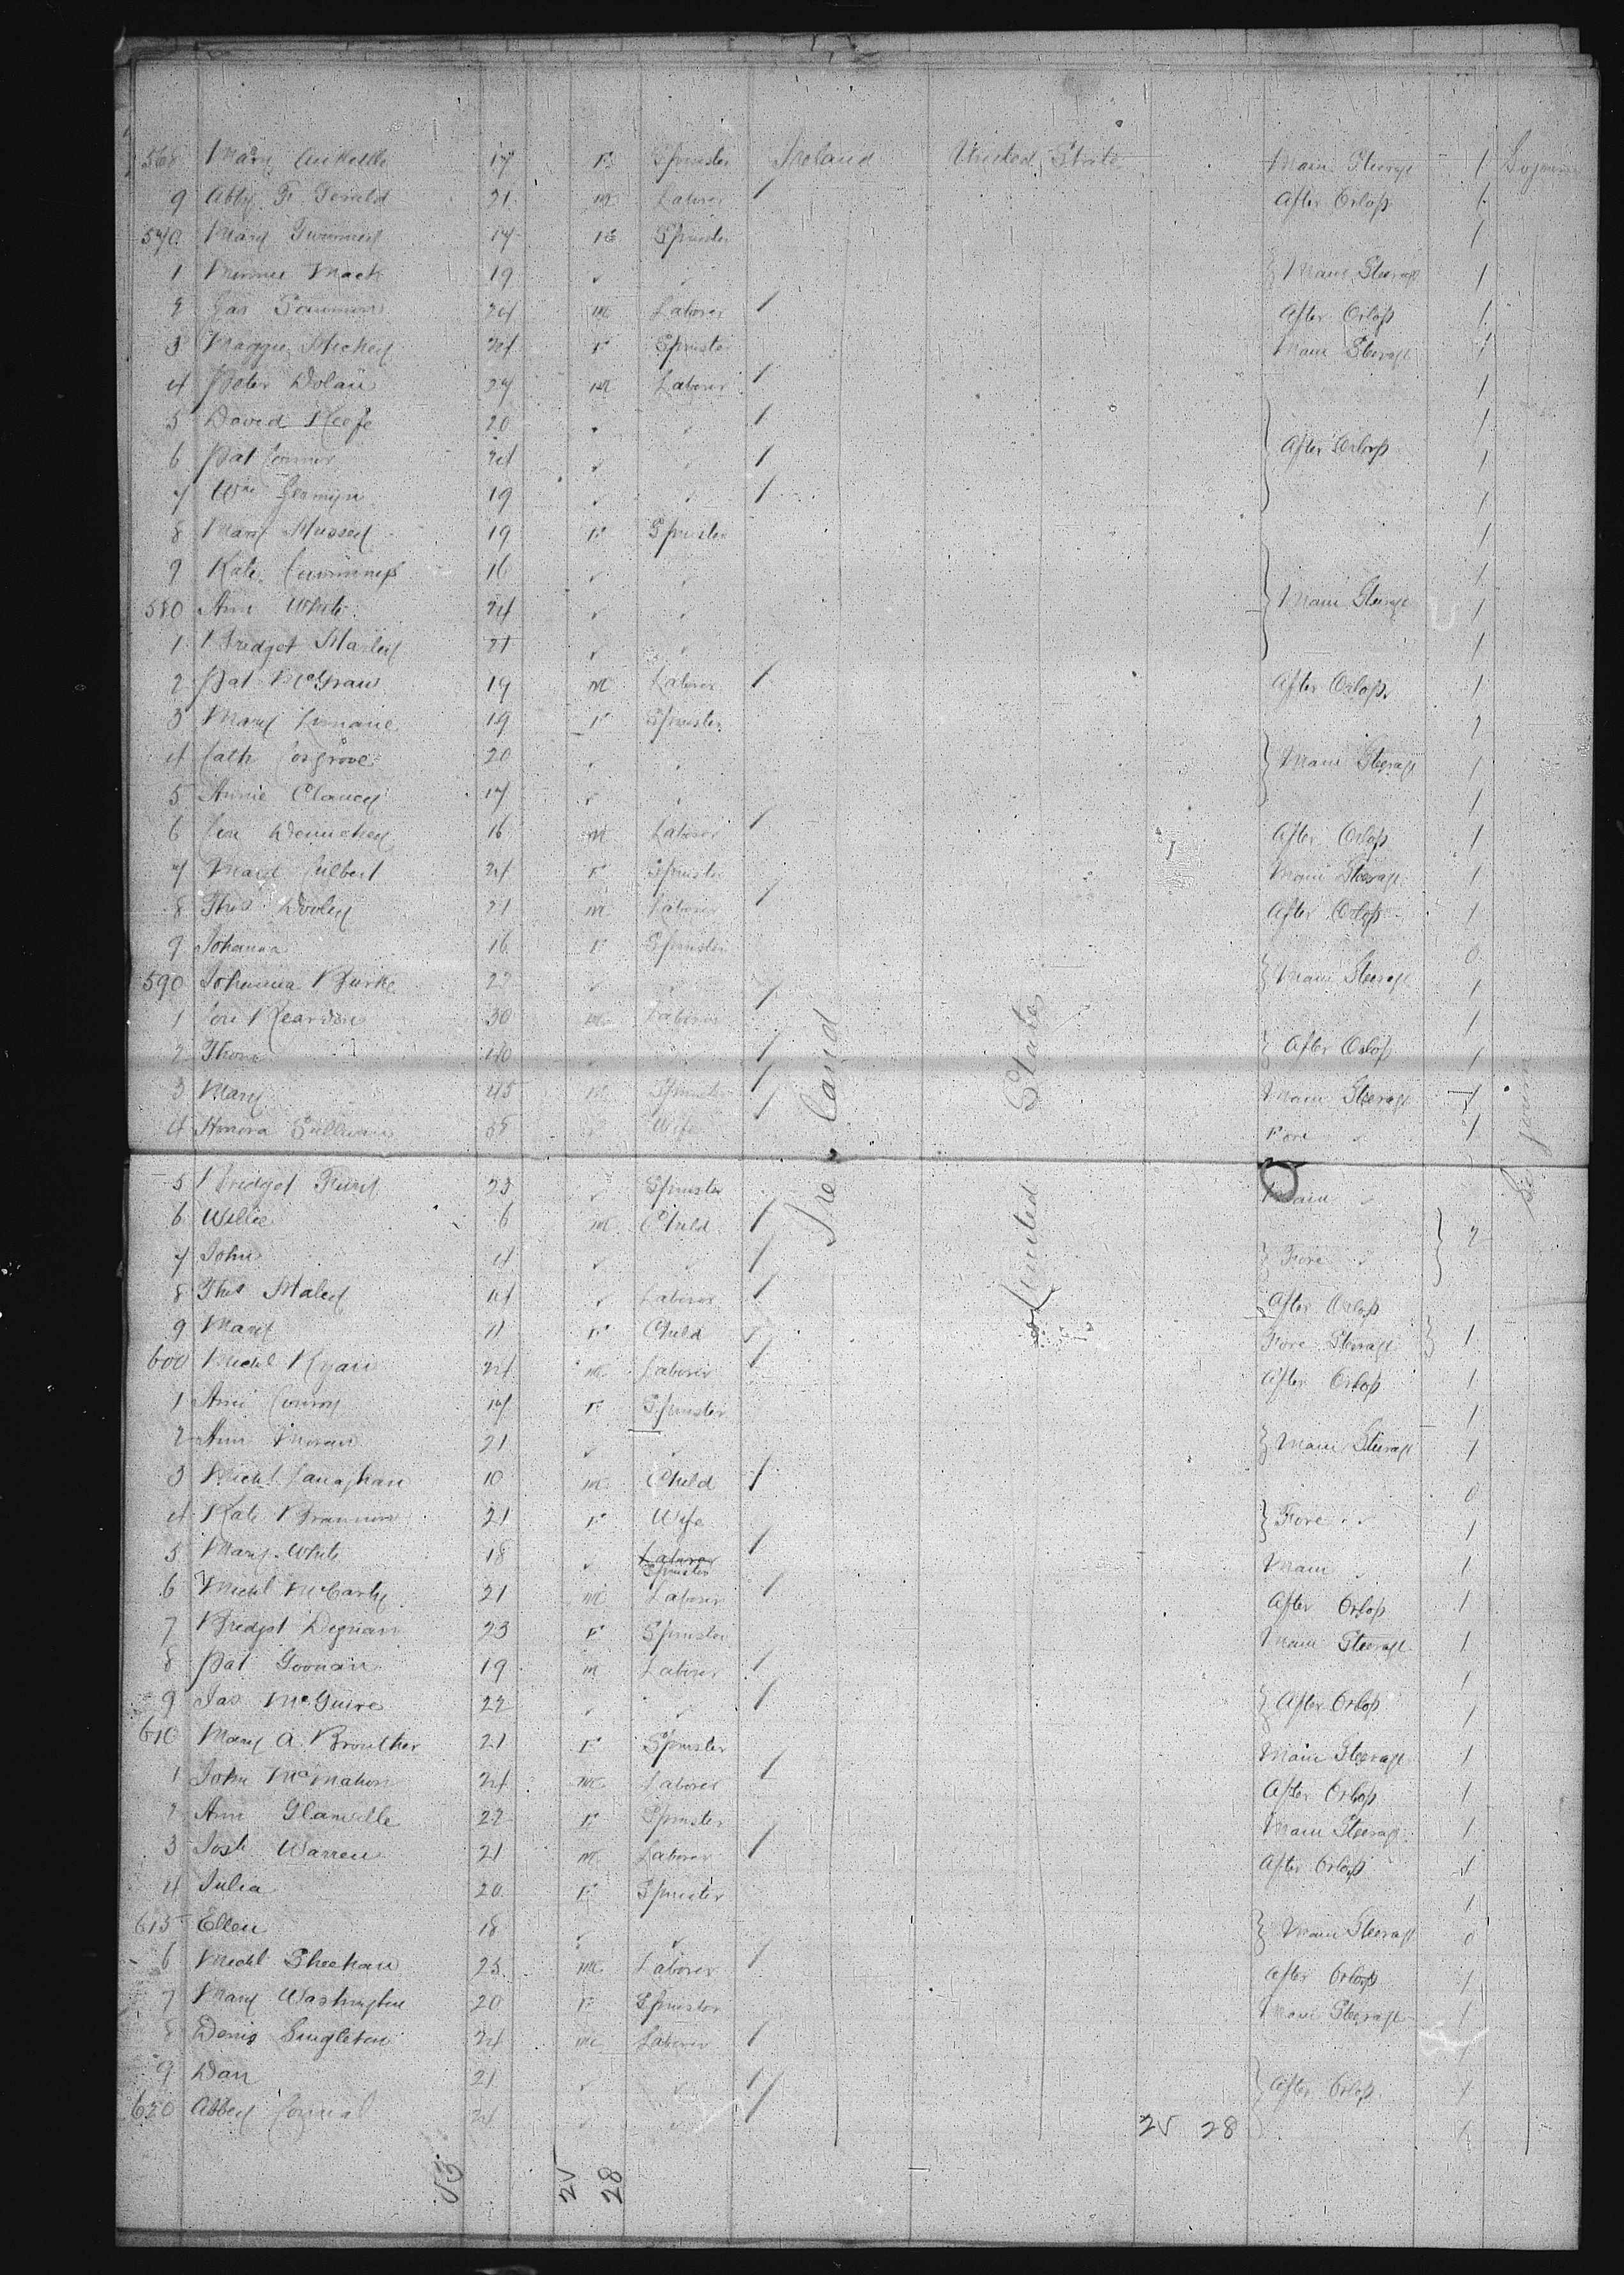 568 Mary 17 F Spinster Ireland United State Main Steerage 1
9 Abby Fr Gerald 21 m Laborer 1 After Orlop 1
570 Mary 17 F Spinster 1
1 Minnie Mack 19 ✓ ✓ Main Steerage 1
2 Jas 24 m Laborer 1 After Orlop 1
3 Maggie 24 F Spinster Main Steerage 1
4 Peter Dolan 27 m Laborer 1 1
5 David Keefe 20 ✓ ✓ 1 1
6 Pat Connor 24 ✓ ✓ 1 After Orlop 1
7 Wm Jermyn 19 ✓ ✓ 1 1
8 Mary 19 F Spinster 1
9 Kate Cummings 16 ✓ ✓ 1
580 Ann White 24 ✓ ✓ Main Steerage 1
1 Bridget 21 ✓ ✓ 1
2 Pat McGraw 19 m Laborer 1 After Orlop 1
3 Mary 19 F Spinster 1
4 Cath Cosgrove 20 ✓ ✓ Main Steerage 1
5 Annie Clancy 17 ✓ ✓ 1
6 Con 16 m Laborer 1 After Orlop 1
7 Mary Culbert 24 F Spinster Main Steerage 1
8 Thos Dooley 21 m Laborer 1 After Orlop 1
9 Johanna 16 F Spinster 0
590 Johanna Burke 22 ✓ ✓ Main Steerage 1
1 Con Reardon 30 m Laborer 1 1
2 Thos 40 ✓ ✓ 1 After Orlop 1
3 Mary 45 Spinster 1 Main Steerage 1
4 Honora Sullivan 58 ✓ Wife 1 Fore ✓ 1
Ireland
United States
5 Bridget 23 ✓ Spinster Main ✓
6 Willie 6 m Child 1
7 John 4 ✓ ✓ 1 Fore ✓ 2
8 Thos 14 ✓ Laborer 1 After Orlop
9 Mary 11 F Child Fore Steerage 1
600 Michl Ryan 24 m Laborer 1 After Orlop 1
1 Ann Conroy 17 F Spinster 1
2 Ann Moran 21 ✓ ✓ Main Steerage 1
3 Michl 10 m Child 1 0
4 Kate 21 F Wife Fore ✓ 1
5 Mary White 18 ✓ Laborer Spinster 1 Main ✓ 1
6 Michl McCarty 21 m Laborer 1 After Orlop 1
7 Bridget Degnan 23 F Spinster Main Steerage 1
8 Pat Goonan 19 m Laborer 1 1
9 Jas McGuire 22 ✓ ✓ 1 After Orlop 1
610 Mary A. Brouther 21 F Spinster Main Steerage 1
1 John McMahon 24 m Laborer 1 After Orlop 1
2 Ann Glanville 22 F Spinster Main Steerage 1
3 Josh Warren 21 m Laborer 1 After Orlop 1
4 Julia 20 F Spinster 1
615 Ellen 18 ✓ ✓ Main Steerage 0
6 Michl Sheehan 23 m Laborer 1 After Orlop 1
7 Mary Washington 20 F Spinster Main Steerage 1
8 Denis Singleton 24 m Laborer 1 1
9 Dan 21 ✓ ✓ 1 After Orlop 1
620 Abbey 24 ✓ ✓ 1
25 28
53 25 28